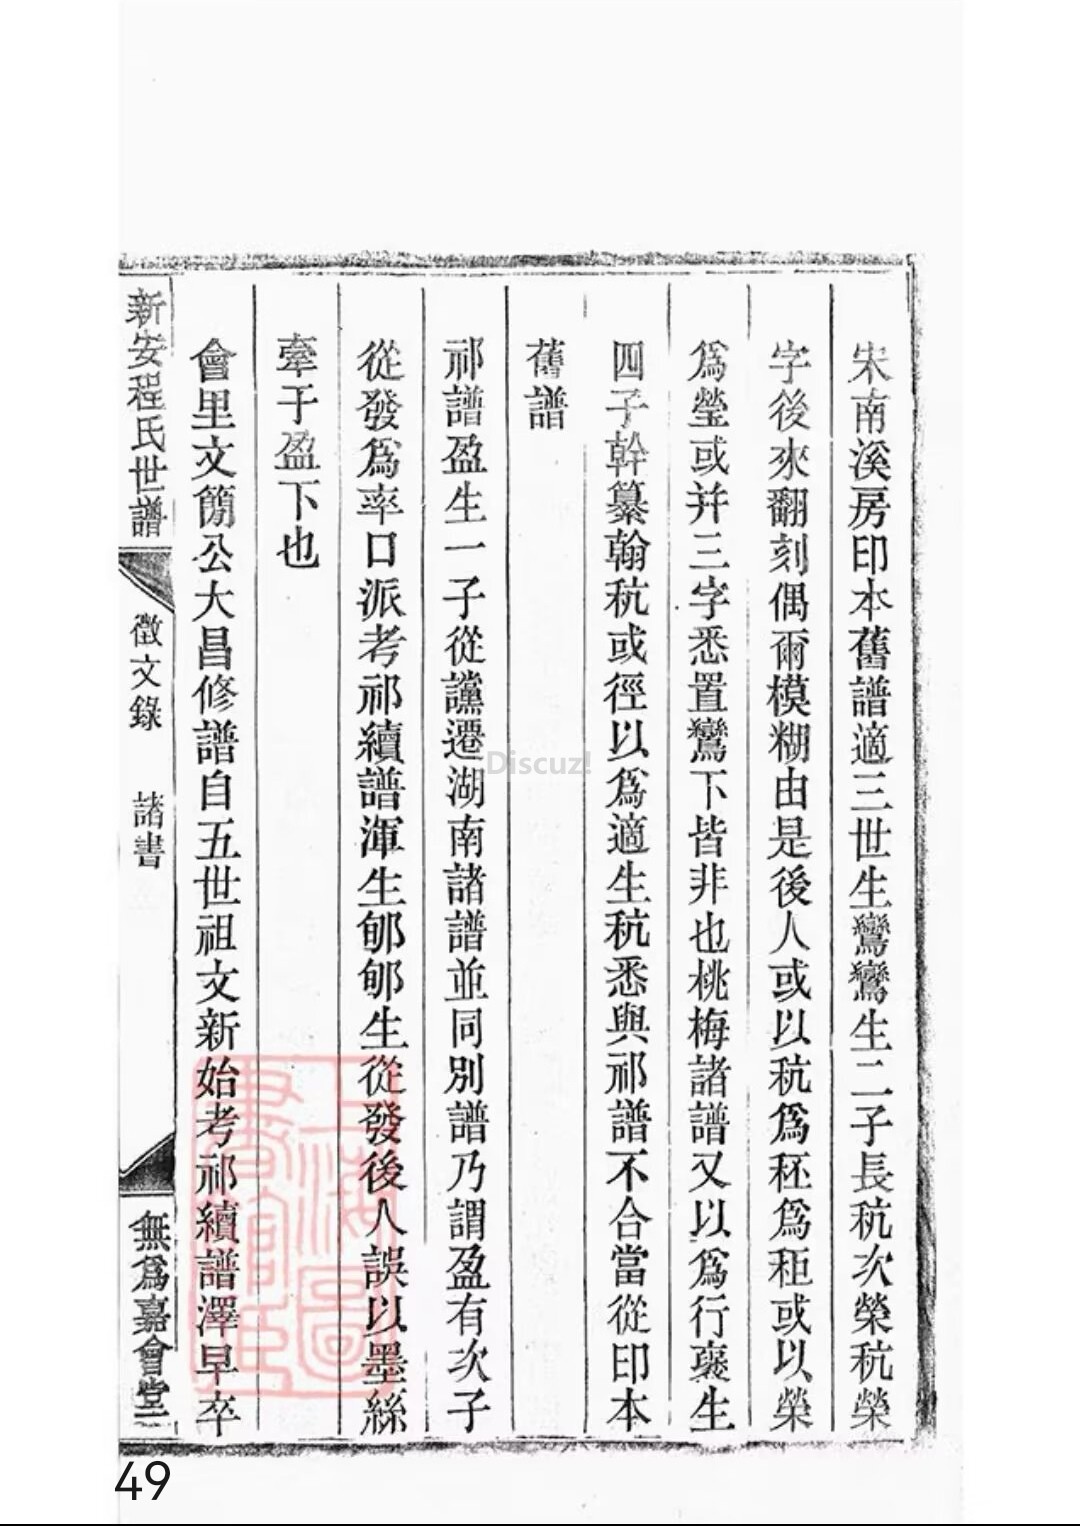 宋南溪房印本舊譜適三世生鸞鸞生二子長秔次榮秔榮
字後來翻刻偶爾模糊由是後人或以秔爲秠爲秬或以榮
爲瑩或并三字悉置鸞下皆非也桃梅諸譜又以爲行褒生
四子幹纂翰秔或徑以爲適生秔悉與祁譜不合當從印本
舊譜
祁譜盈生一子從讜遷湖南諸譜並同別譜乃謂盈有次子
從發爲率口派考祁續譜渾生郇郇生從發後人誤以墨絲
牽于盈下也
會里文簡公大昌修譜自五世祖文新始考祁續譜澤早卒
新安程氏世譜
徵文錄
諸書
無爲嘉會堂
上海圖書館藏
Discuz!
49